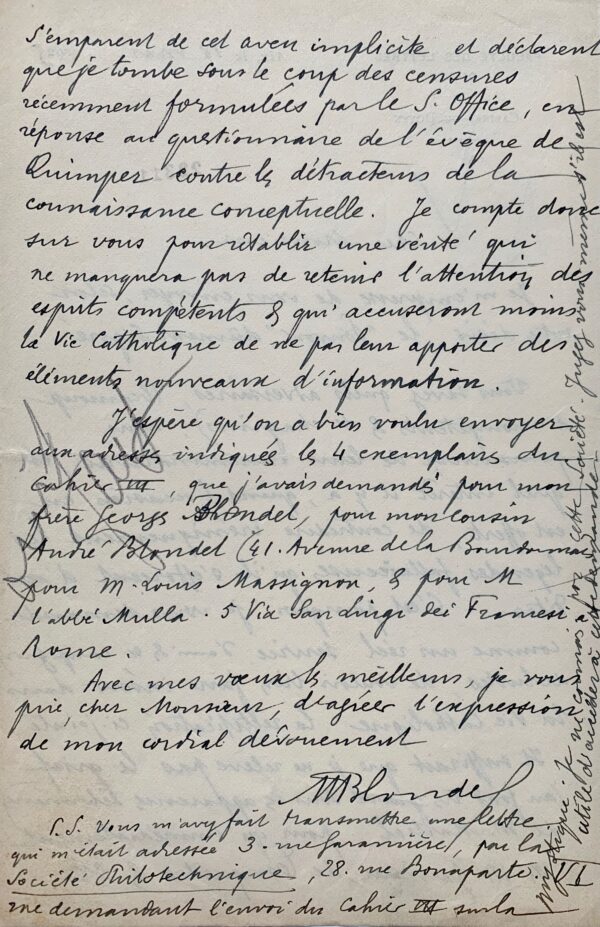 s'emparent de cet aveu implicite et déclarent
que je tombe sous le coup des censures
récemment formulées par le S. Office, en
réponse au questionnaire de l'évêque de
Quimper contre les détracteurs de la
connaissance conceptuelle. Je compte donc
sur vous pour rétablir une vérité qui
ne manquera pas de retenir l'attention des
esprits compétents & qui accuseront moins
la Vie Catholique de ne pas leur apporter des
éléments nouveaux d'information.
J'espère qu'on a bien voulu envoyer
aux adresses indiqués les 4 exemplaires du
Cahier III, que j'avais demandés pour mon
frère Georges Blondel, pour mon cousin
André Blondel (41. Avenue de la Bourdonnais
pour M. Louis Massignon, & pour M
l'abbé Mulla. 5 Via San Luigi dei Francesi
Rome.
Avec mes vœux les meilleurs, je vous
prie, cher Monsieur, d'agréer l'expression
de mon cordial dévouement
MBlondel
P.S. Vous m'avez fait transmettre une lettre
qui m'était adressée 3. rue Garancière, par la
Société Philotechnique, 28. rue Bonaparte. VI
me demandant l'envoi du Cahier III sur la
mystique. Je ne connais pas cette Société. Jugez vous même s'il est
utile d'accéder à cette demande.